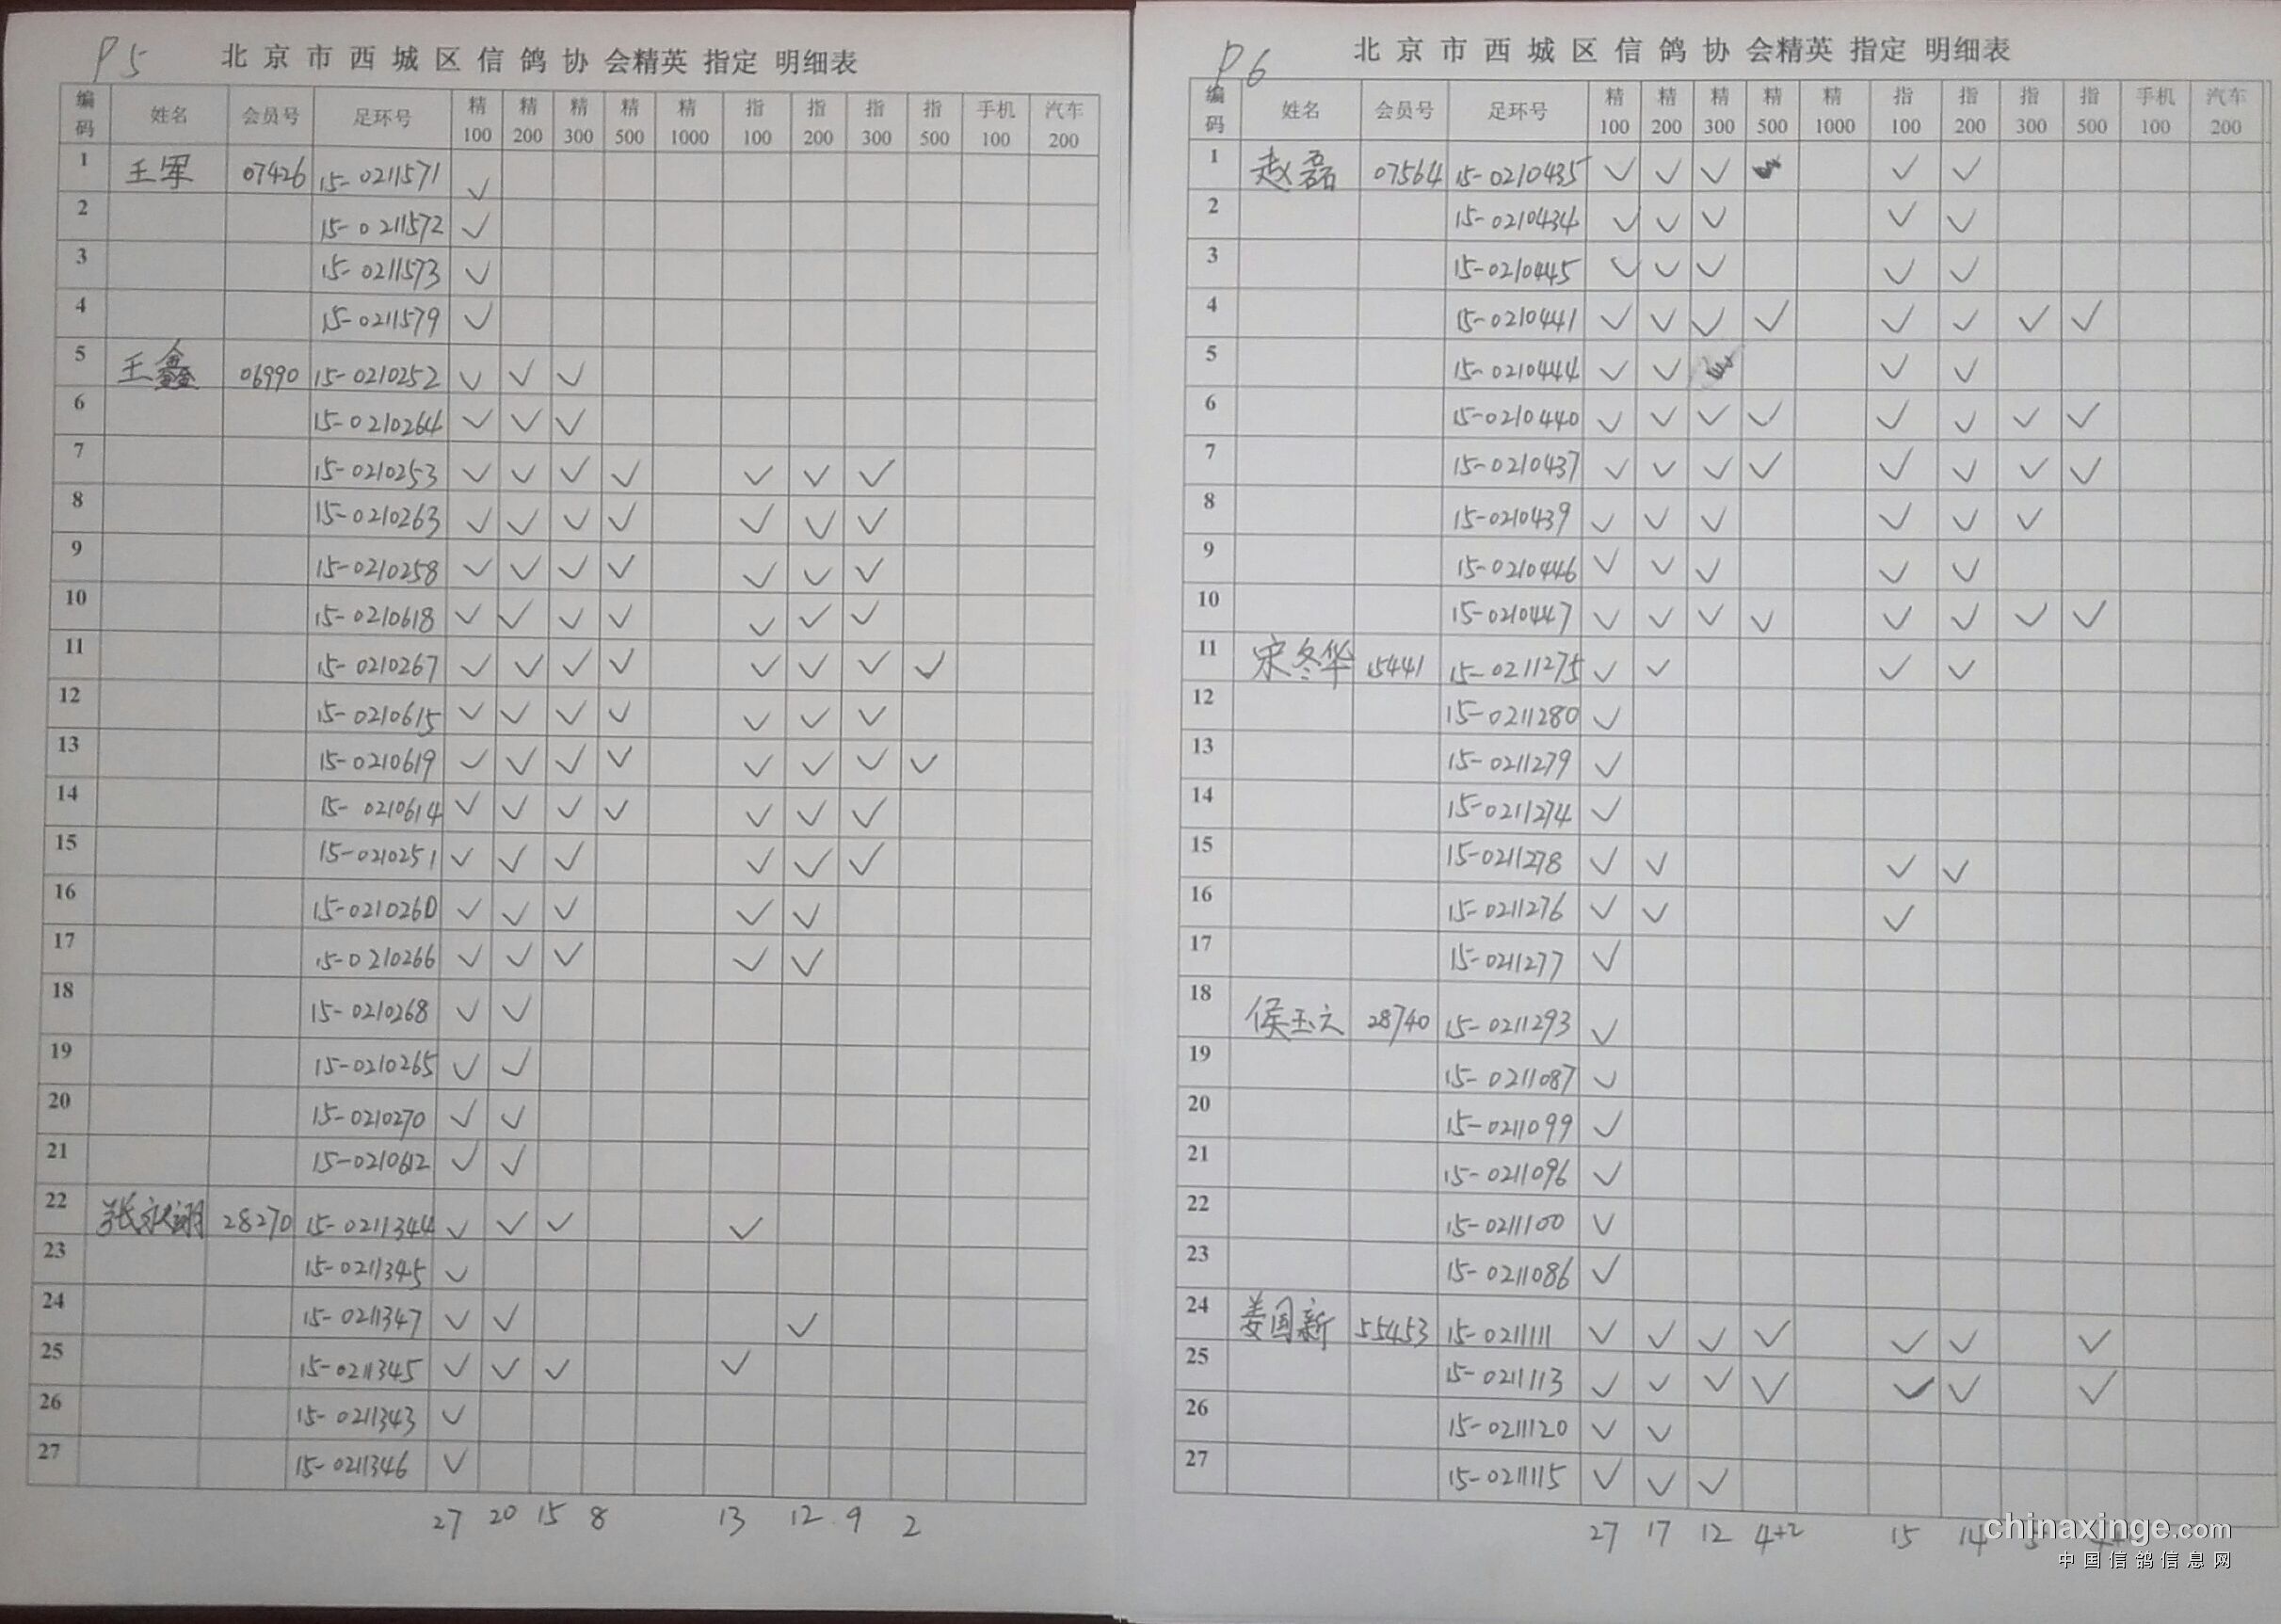 P5
北京市西城区信鸽协会精英 指定 明细表
编码 姓名 会员号 足环号 精100 精200 精300 精500 精1000 指100 指200 指300 指500 手机100 汽车200
1 王军 07426 15-0211571 ✓
2 15-0211572 ✓
3 15-0211573 ✓
4 15-0211579 ✓
5 王鑫 06990 15-0210252 ✓ ✓ ✓
6 15-0210264 ✓ ✓ ✓
7 15-0210253 ✓ ✓ ✓ ✓ ✓ ✓ ✓
8 15-0210263 ✓ ✓ ✓ ✓ ✓ ✓ ✓
9 15-0210258 ✓ ✓ ✓ ✓ ✓ ✓ ✓
10 15-0210618 ✓ ✓ ✓ ✓ ✓ ✓ ✓
11 15-0210267 ✓ ✓ ✓ ✓ ✓ ✓ ✓ ✓
12 15-0210615 ✓ ✓ ✓ ✓ ✓ ✓ ✓
13 15-0210619 ✓ ✓ ✓ ✓ ✓ ✓ ✓ ✓
14 15-0210614 ✓ ✓ ✓ ✓ ✓ ✓ ✓
15 15-0210251 ✓ ✓ ✓ ✓ ✓ ✓
16 15-0210260 ✓ ✓ ✓ ✓ ✓
17 15-0210266 ✓ ✓ ✓ ✓ ✓
18 15-0210268 ✓ ✓
19 15-0210265 ✓ ✓
20 15-0210270 ✓ ✓
21 15-0210612 ✓ ✓
22 张永翊 28270 15-0211344 ✓ ✓ ✓ ✓
23 15-0211345 ✓
24 15-0211347 ✓ ✓ ✓
25 15-0211345 ✓ ✓ ✓ ✓
26 15-0211343 ✓
27 15-0211346 ✓
27 20 15 8 13 12 9 2
P6
北京市西城区信鸽协会精英 指定 明细表
编码 姓名 会员号 足环号 精100 精200 精300 精500 精1000 指100 指200 指300 指500 手机100 汽车200
1 赵磊 07564 15-0210435 ✓ ✓ ✓ ✓ ✓
2 15-0210434 ✓ ✓ ✓ ✓ ✓
3 15-0210445 ✓ ✓ ✓ ✓ ✓
4 15-0210441 ✓ ✓ ✓ ✓ ✓ ✓ ✓ ✓
5 15-0210444 ✓ ✓ ✓ ✓
6 15-0210440 ✓ ✓ ✓ ✓ ✓ ✓ ✓ ✓
7 15-0210437 ✓ ✓ ✓ ✓ ✓ ✓ ✓ ✓
8 15-0210439 ✓ ✓ ✓ ✓ ✓ ✓
9 15-0210446 ✓ ✓ ✓ ✓ ✓
10 15-0210447 ✓ ✓ ✓ ✓ ✓ ✓ ✓ ✓
11 宋冬华 15441 15-0211275 ✓ ✓ ✓ ✓
12 15-0211280 ✓
13 15-0211279 ✓
14 15-0211274 ✓
15 15-0211278 ✓ ✓ ✓ ✓
16 15-0211276 ✓ ✓ ✓
17 15-0211277 ✓
18 侯玉六 28740 15-0211293 ✓
19 15-0211087 ✓
20 15-0211099 ✓
21 15-0211096 ✓
22 15-0211100 ✓
23 15-0211086 ✓
24 姜国新 55453 15-0211111 ✓ ✓ ✓ ✓ ✓ ✓ ✓
25 15-0211113 ✓ ✓ ✓ ✓ ✓ ✓ ✓
26 15-0211120 ✓ ✓
27 15-0211115 ✓ ✓ ✓
27 17 12 4+2 15 14
chinaxinge.com
中国信鸽信息网